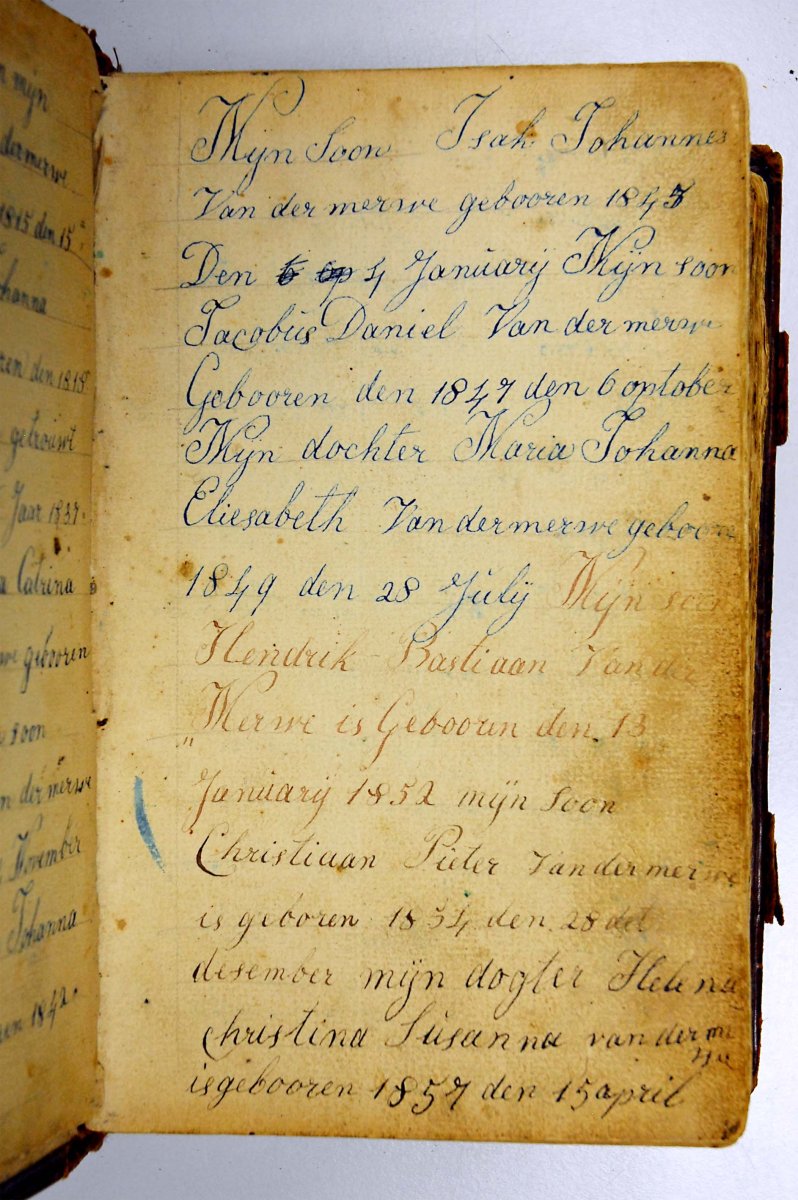 n mijn
dermerwe
1815 den 15
hanna
ren den 1818
getrouwt
Jaar 1837.
a Catrina
we gebooren
soon
n der merwe
November
Johanna
en 1842.
Mijn Soon Isak Johannes
Van der merwe gebooren 1845
Den 4 Januarij Mijn soon
Jacobus Daniel Van der merwe
Gebooren den 1847 den 6 optober
Mijn dochter Maria Johanna
Eliesabeth Van der merwe geboore
1849 den 28 Julij Mijn soon
Hendrik Bastiaan Van der
"Merwe is Gebooren den 13
Januarij 1852 mijn soon
Christiaan Pieter Van der merwe
is geboren 1854 den 28 det
desember mijn dogter Helena
Christina Susanna van der me
rwe
is gebooren 1857 den 15 april